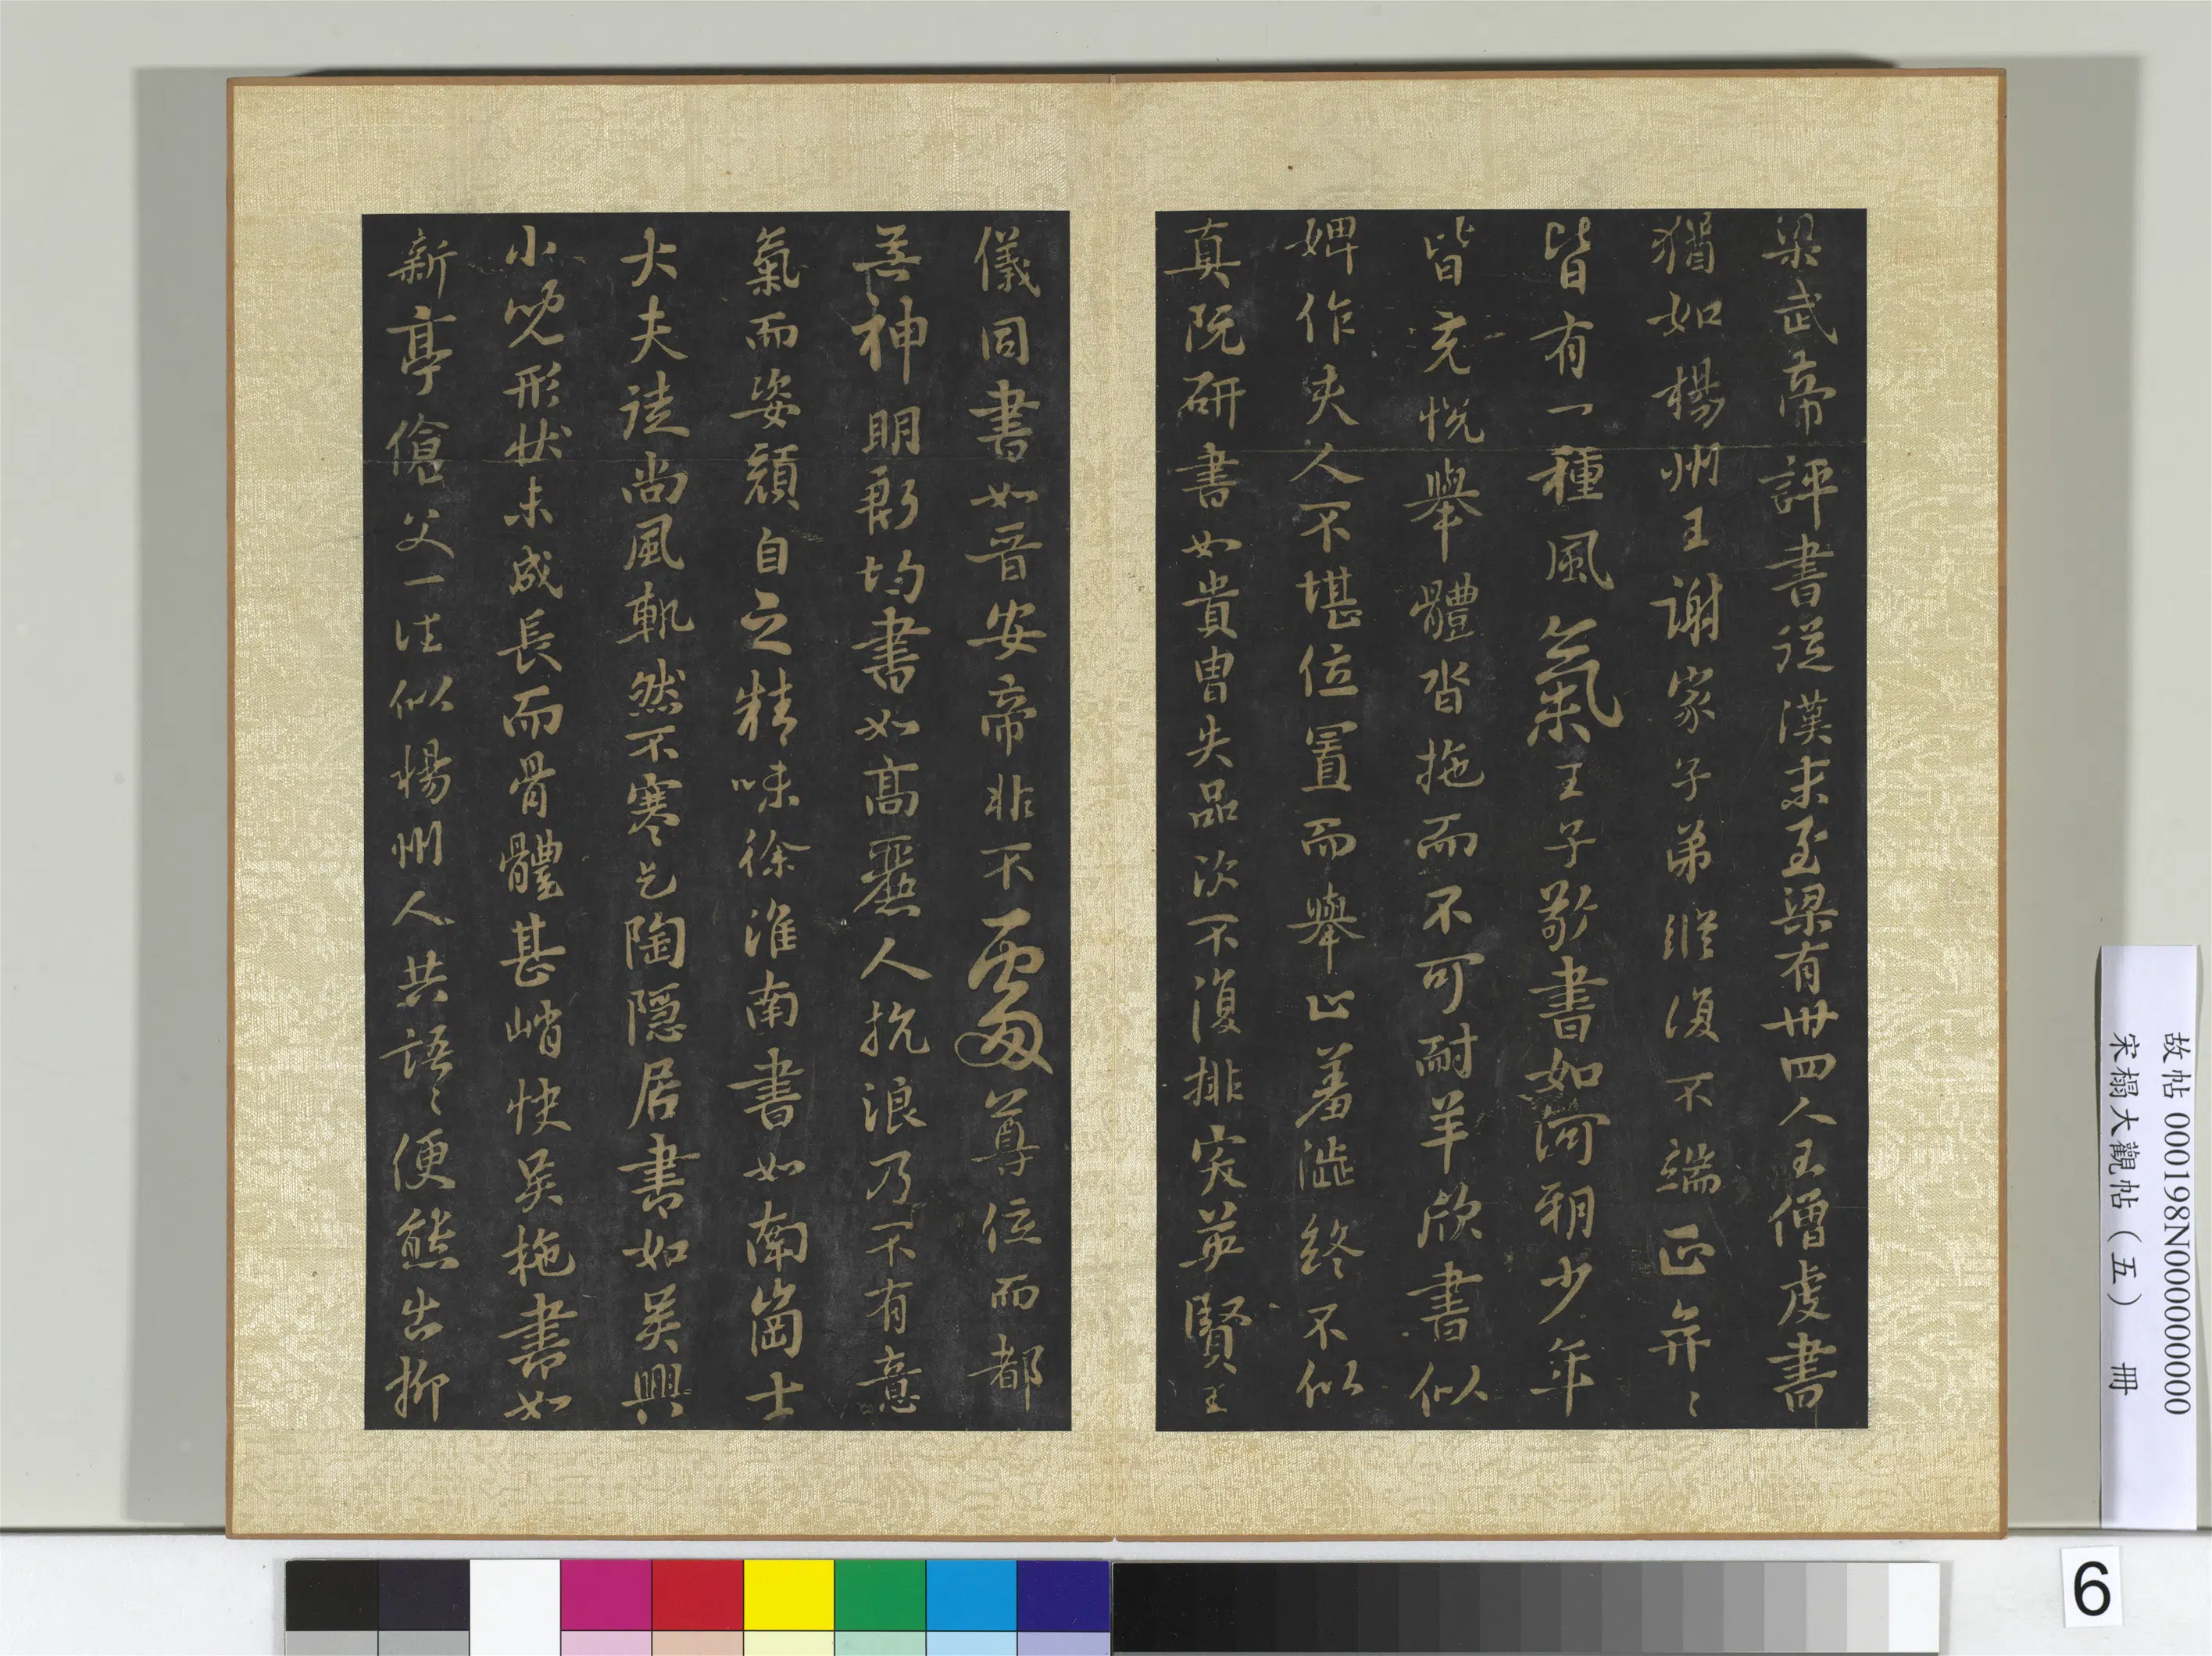 梁武帝評書從漢末至梁有卅四人王僧虔書
猶如楊州王謝家子弟縱復不端正奕〻
皆有一種風氣王子敬書如河朔少年
皆充悅舉體沓拖而不可耐羊欣書似
婢作夫人不堪位置而舉止羞澁終不似
真阮研書如貴胄失品次不復排突英賢王
儀同書如晉安帝非不處尊位而都
無神明郄均書如高麗人抗浪乃不有意
氣而姿顏自之精味徐淮南書如南崗士
大夫徒尚風軌然不寒乞陶隱居書如吳興
小兒形狀未成長而骨體甚峭快吳拖書如
新亭傖父一往似楊州人共語〻便態出柳
故帖 000198N000000000
宋榻大觀帖（五） 冊
6